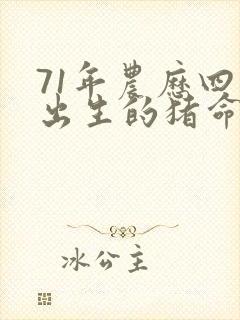 71年農歷四
出生的猪命
冰公主